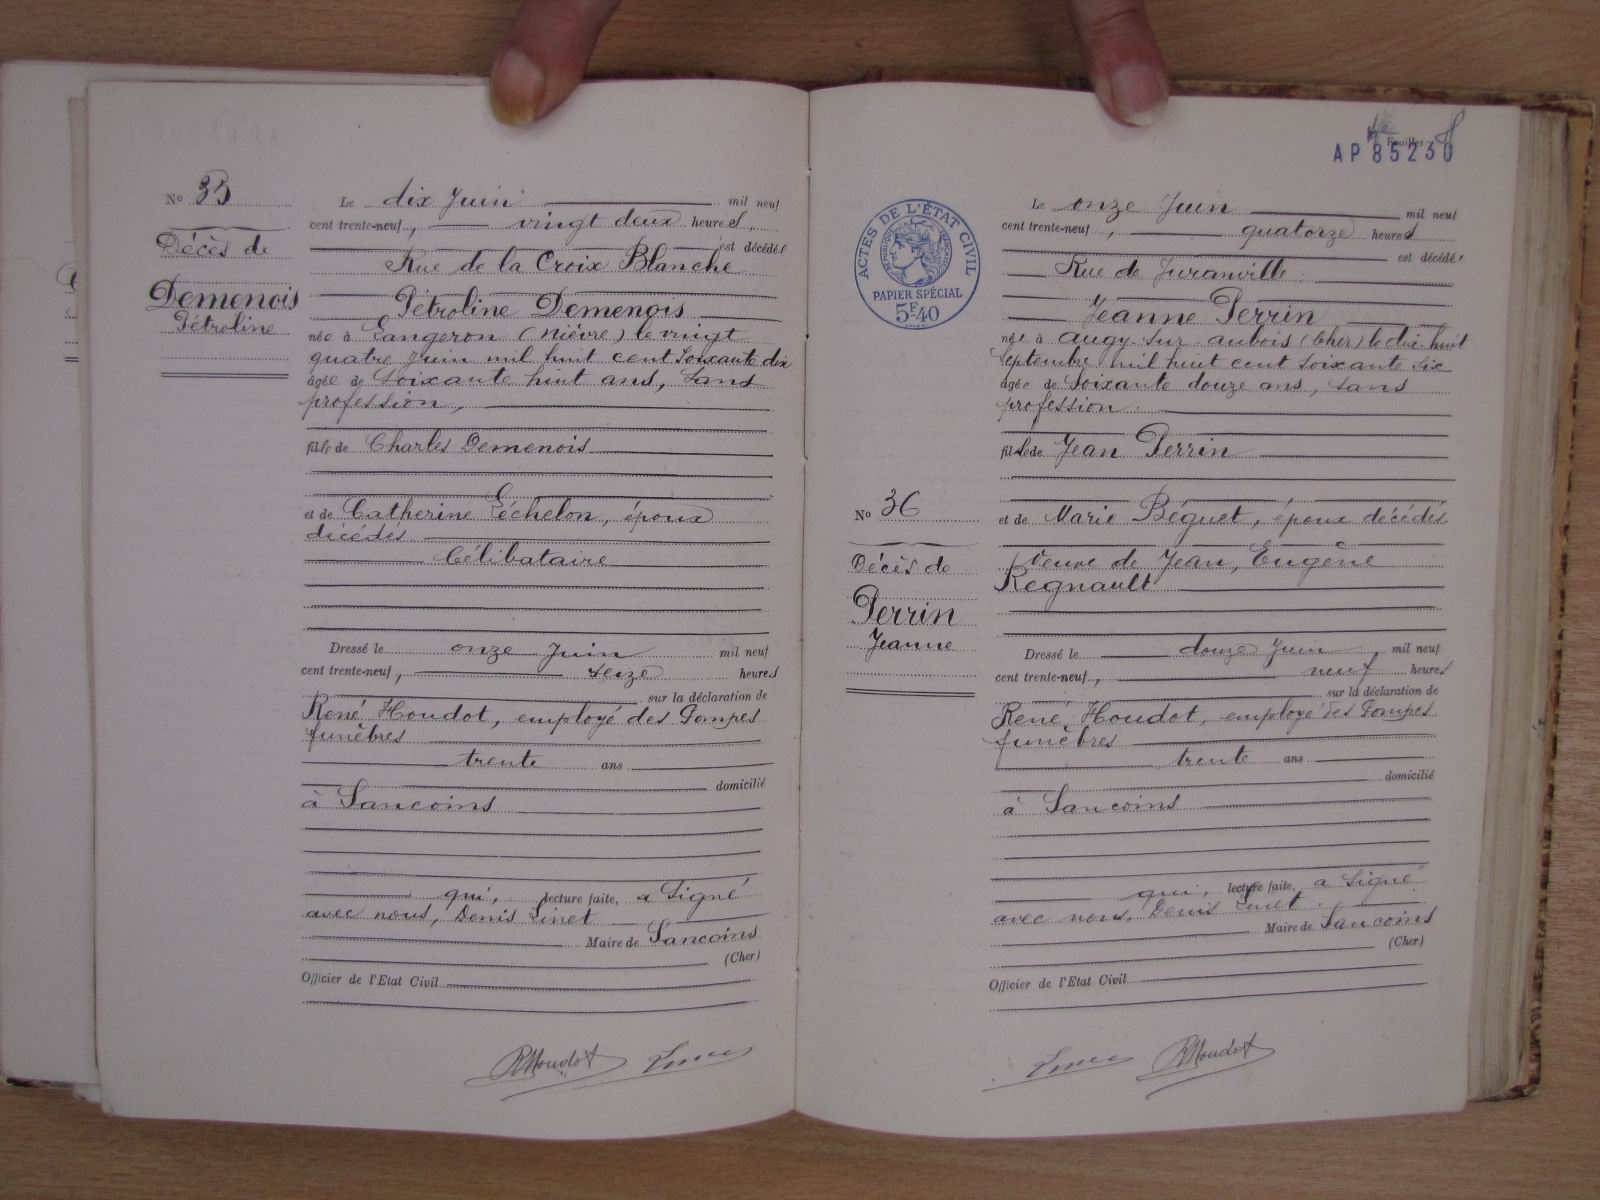 N° 35
Décès de
Demenois
Pétroline
Le dix Juin mil neuf
cent trente-neuf, vingt deux heures,
est décédée
Rue de la Croix Blanche
Pétroline Demenois
née à Langeron (Nièvre) le vingt
quatre Juin mil huit cent soixante dix
âgée de soixante huit ans, sans
profession,
fille de Charles Demenois
et de Catherine Léchelon, époux
décédés
Célibataire
Dressé le onze Juin mil neuf
cent trente-neuf, seize heures
sur la déclaration de
René Houdot, employé des Pompes
funèbres
trente ans
domicilié
à Sancoins
qui, lecture faite, a signé
avec nous, Denis Linet
Maire de Sancoins
(Cher)
Officier de l'Etat Civil
RHoudot Linet
Feuillet
AP85230
ACTES DE L'ÉTAT CIVIL
RÉPUBLIQUE FRANÇAISE
PAPIER SPÉCIAL
5F40
N° 36
Décès de
Perrin
Jeanne
Le onze Juin mil neuf
cent trente-neuf, quatorze heures
est décédée
Rue de Juranville
Jeanne Perrin
née à Augy sur Aubois (Cher) le dix huit
septembre mil huit cent soixante six
âgée de soixante douze ans, sans
profession.
fille de Jean Perrin
et de Marie Béguet, époux décédés
Veuve de Jean, Eugène
Regnault
Dressé le douze Juin, mil neuf
cent trente-neuf, neuf heures
sur la déclaration de
René Houdot, employé des Pompes
funèbres
trente ans
domicilié
à Sancoins
qui, lecture faite, a signé
avec nous, Denis Linet.
Maire de Sancoins
(Cher)
Officier de l'Etat Civil
Linet RHoudot